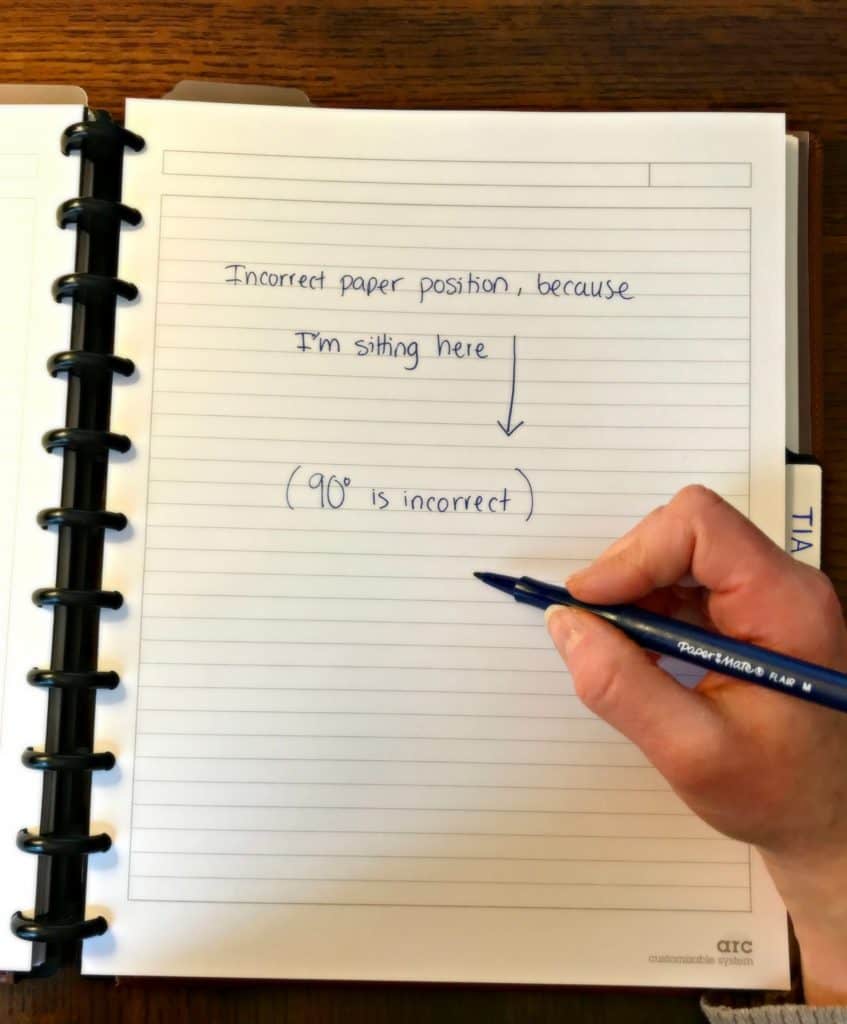 Incorrect paper position, because
I'm sitting here
(90° is incorrect)
TIA
Paper:Mate® FLAIR M
arc
customizable system